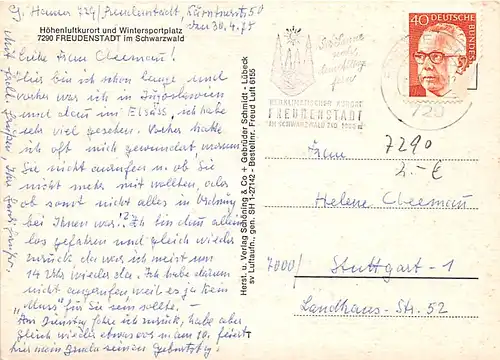 724 Freudenstadt,
den 30.4.75
Höhenluftkurort und Wintersportplatz
7290 FREUDENSTADT im Schwarzwald
Liebe Frau
Hier bin ich schon lange und
vorher war ich in Jugoslawien
und dann im Elsass, ich habe
sehr viel gesehen. Vorher hatte
ich oft mich gewundert warum
Sie nicht anrufen u. ob Sie
nicht mehr mit wollten, oder
ob sonst nicht alles in Ordnung
bei Ihnen war? Ich bin dann allein
los gefahren und gleich wieder
zurück da war ich meist um
14 Uhr wieder da. Ich habe darum
nicht angerufen weil es ja kein
"Muss" für Sie sein sollte.
Am Dienstag fahre ich zurück, habe aber
gleich wieder etwas vor am 10. feiert
seinen Geburtstag!
Mit
Grüßen, Ihre
Herst. u. Verlag Schöning & Co + Gebrüder Schmidt - Lübeck
sv Luftaufn., gen. SH 1-27/42 - Bestellnr. Freud Luft 6155
HEILKLIMATISCHER KURORT
FREUDENSTADT
IM SCHWARZWALD 740-1000 m
720
40
DEUTSCHE BUNDESPOST
7290
2.-€
Frau
Helene
7000/ Stuttgart-1
Landhaus-Str. 52